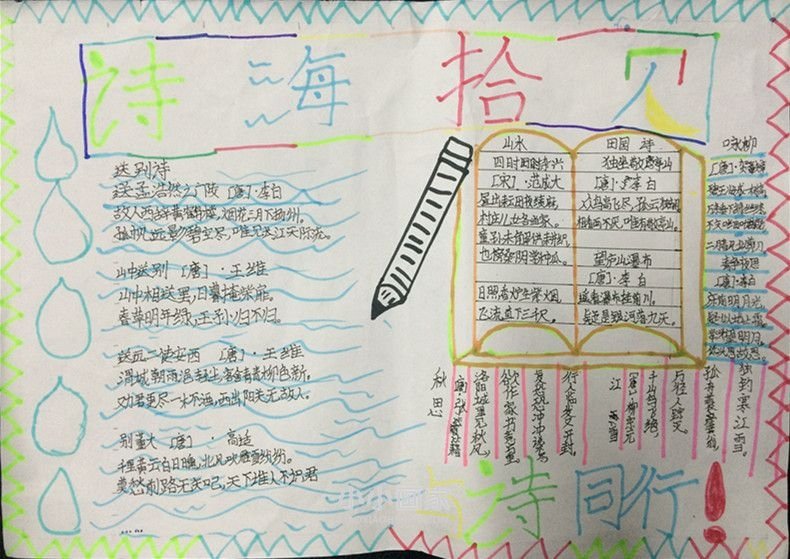 诗海拾贝
送别诗
送孟浩然之广陵 [唐]·李白
故人西辞黄鹤楼,烟花三月下扬州。
孤帆远影碧空尽,唯见长江天际流。
山中送别 [唐]·王维
山中相送罢,日暮掩柴扉。
春草明年绿,王孙归不归。
送元二使安西 [唐]·王维
渭城朝雨浥轻尘,客舍青青柳色新。
劝君更尽一杯酒,西出阳关无故人。
别董大 [唐]·高适
千里黄云白日曛,北风吹雁雪纷纷。
莫愁前路无知己,天下谁人不识君
山水
四时田园杂兴
[宋]·范成大
昼出耘田夜绩麻,
村庄儿女各当家。
童孙未解供耕织,
也傍桑阴学种瓜。
日照香炉生紫烟,
飞流直下三千尺,
田园 诗
独坐敬亭山
[唐]·李白
众鸟高飞尽,孤云独去闲。
相看两不厌,唯有敬亭山。
望庐山瀑布
[唐]·李白
遥看瀑布挂前川。
疑是银河落九天。
咏柳
[唐]·贺知章
碧玉妆成一树高,
万条垂下绿丝绦。
不知细叶谁裁出,
二月春风似剪刀
静夜思
[唐]·李白
床前明月光,
疑是地上霜。
举头望明月,
低头思故思。
秋思
[唐]·张籍
洛阳城里见秋风,
欲作家书意万重。
复恐匆匆说不尽
行人临发又开封。
江雪
[唐]·柳宗元
千山鸟飞绝,
万径人踪灭。
孤舟蓑笠翁,
独钓寒江雪。
与诗同行!
中小画家